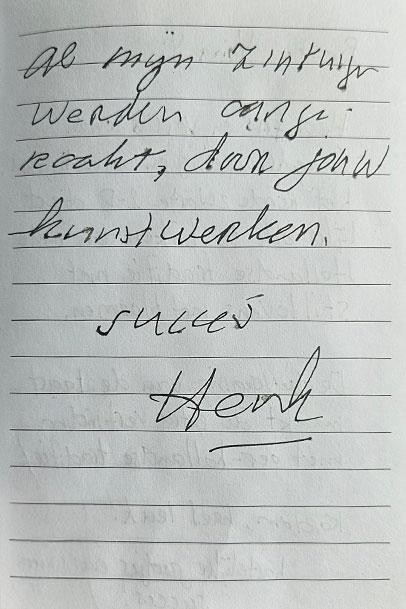 Al mijn zintuigen
werden aange
raakt, door jouw
kunstwerken.
succes
Henk